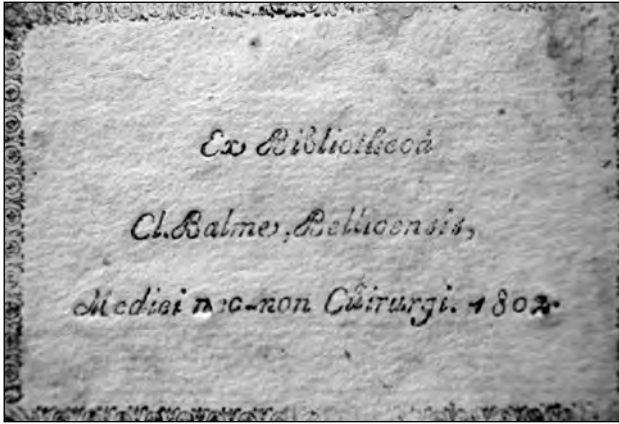 Ex Bibliothecâ
Cl. Balme, Bellicensis,
Medici nec-non Chirurgi. 1802.